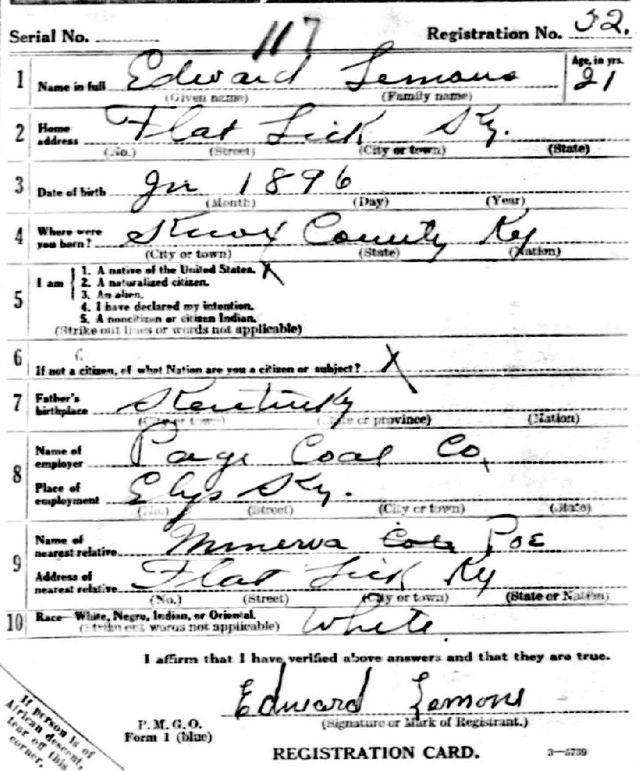 Serial No. 117 Registration No. 32.
1 Name in full Edward Lemons Age, in yrs. 21
(Given name) (Family name)
2 Home address Flat Lick Ky.
(No.) (Street) (City or town) (State)
3 Date of birth Jn 1896
(Month) (Day) (Year)
4 Where were you born? Knox County Ky
(City or town) (State) (Nation)
5 I am
1. A native of the United States. X
2. A naturalized citizen.
3. An alien.
4. I have declared my intention.
5. A noncitizen or citizen Indian.
(Strike out lines or words not applicable)
6 If not a citizen, of what Nation are you a citizen or subject? X
7 Father's birthplace Kentucky
(City or town) (State or province) (Nation)
8 Name of employer Page Coal Co.
Place of employment Elys Ky.
(No.) (Street) (City or town) (State)
9 Name of nearest relative Minerva Cole Poe
Address of nearest relative Flat Lick Ky
(No.) (Street) (City or town) (State or Nation)
10 Race—White, Negro, Indian, or Oriental. White
(Strike out words not applicable)
I affirm that I have verified above answers and that they are true.
Edward Lemons
P. M. G. O. (Signature or Mark of Registrant.)
Form 1 (blue)
REGISTRATION CARD. 3—5739
If person is of
African descent,
tear off this
corner.